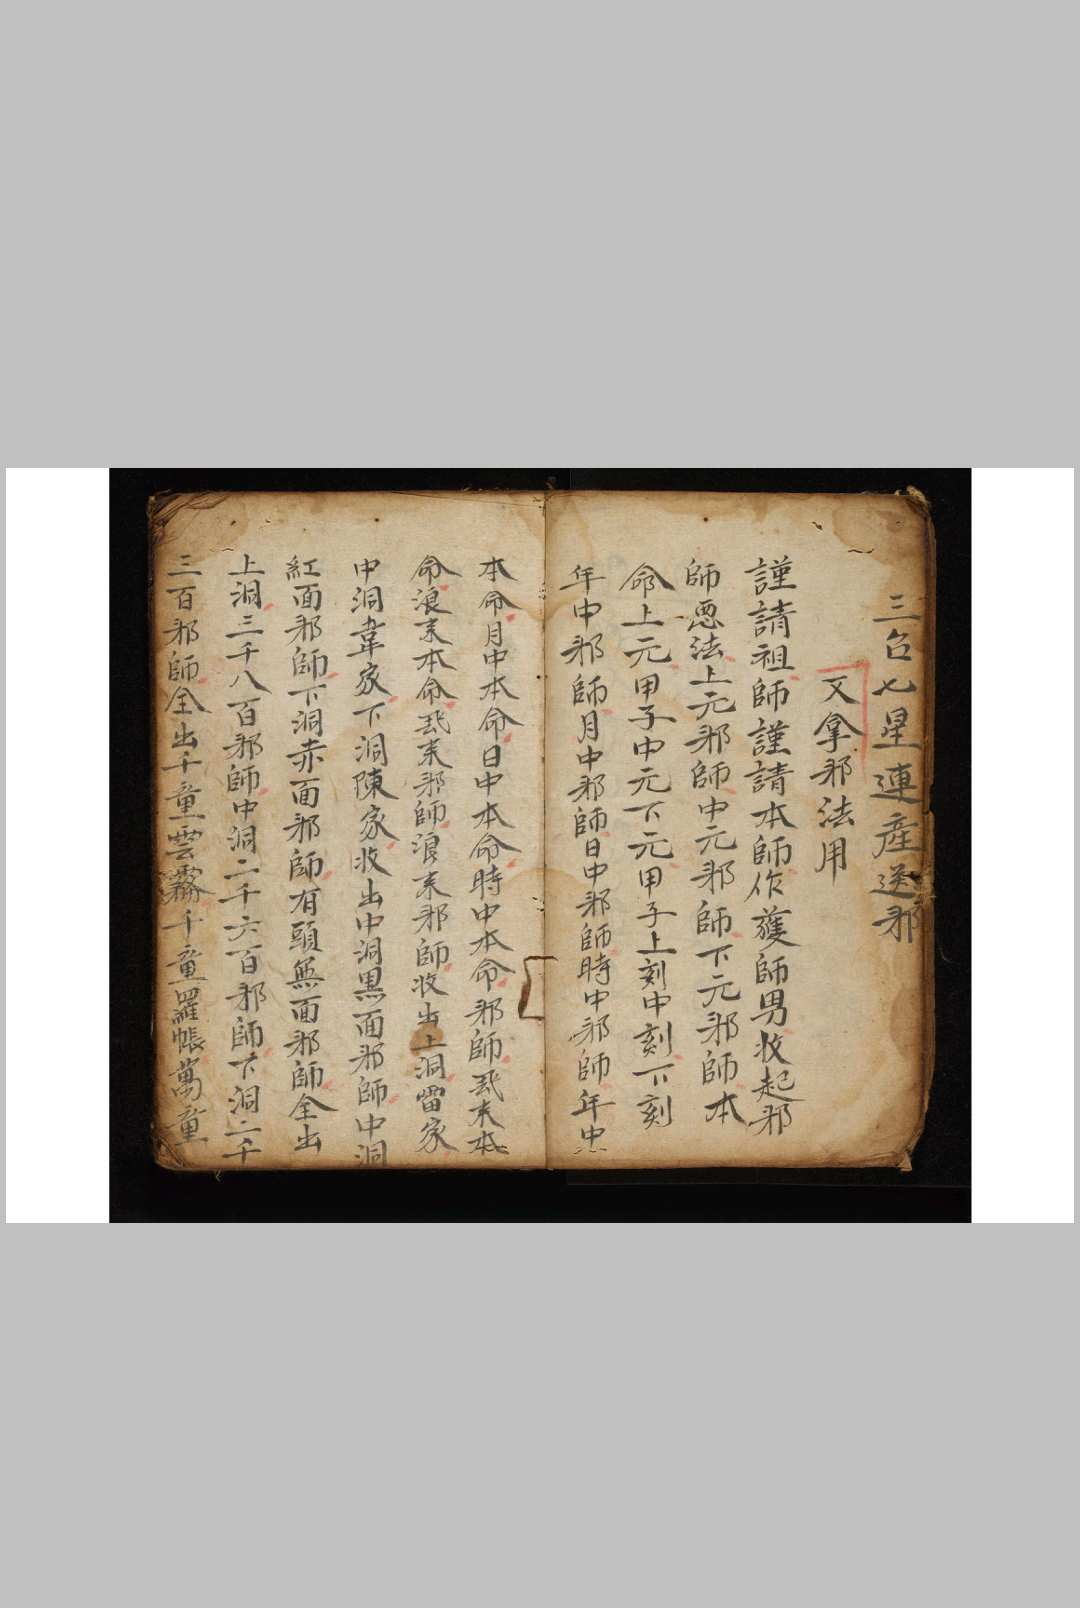 三台七星連座送邪
又拿邪法用
謹請祖師謹請本師作護師男收起邪
師惡法上元邪師中元邪師下元邪師本
命上元甲子中元下元甲子上刻中刻下刻
年中邪師月中邪師日中邪師時中邪師年中
本命月中本命日中本命時中本命邪師末本
命浪末本命末邪師浪末邪師收出上洞雷家
中洞韋家下洞陳家收出中洞黑面邪師中洞
紅面邪師下洞赤面邪師有頭無面邪師全出
上洞三千八百邪師中洞二千六百邪師下洞二千
三百邪師全出千童雲霧千童羅帳萬童